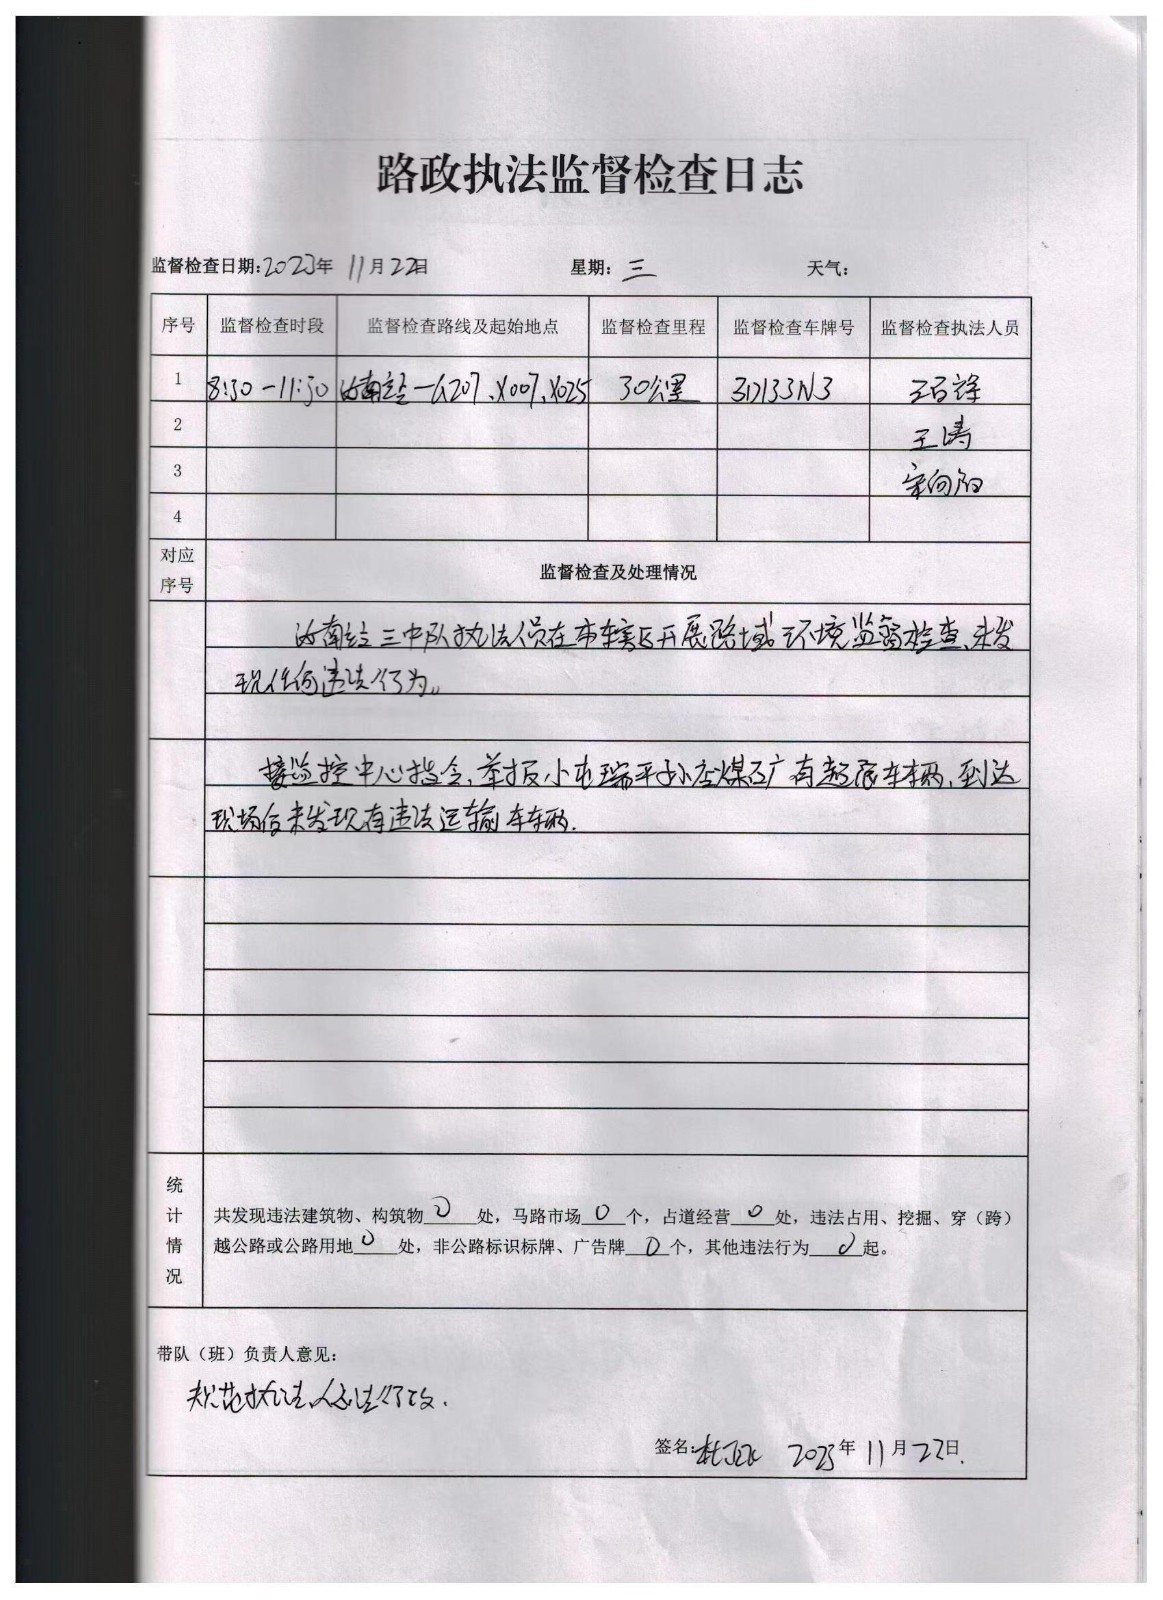 路政执法监督检查日志
监督检查日期:2023年 11月22日 星期: 三 天气:
序号 监督检查时段 监督检查路线及起始地点 监督检查里程 监督检查车牌号 监督检查执法人员
1 8:30-11:30 汝南站-G207、X007、X025 30公里 3D133N3 王百锋
2 王涛
3 宋向阳
4
对应
序号
监督检查及处理情况
汝南站三中队执法人员在本辖区开展路域环境监督检查,未发
现任何违法行为。
接监控中心指令,举报小屯瑞平子小庄煤矿有超限车辆,到达
现场后未发现有违法运输车车辆.
统
计
情
况
共发现违法建筑物、构筑物0处,马路市场0个,占道经营0处,违法占用、挖掘、穿(跨)
越公路或公路用地0处,非公路标识标牌、广告牌0个,其他违法行为0起。
带队(班)负责人意见:
规范执法,依法行政.
签名: 2023年11月22日.